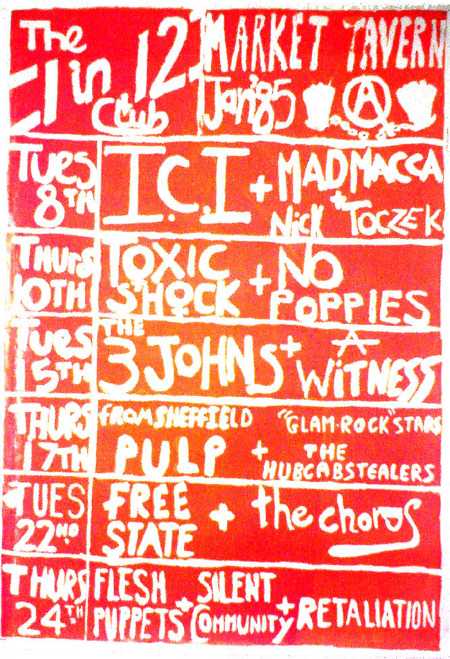 The 1 in 12 Club
MARKET TAVERN
Jan '85
TUES 8TH
I.C.I + MAD MACCA + NICK TOCZEK
THURS 10TH
TOXIC SHOCK + NO POPPIES
TUES 15TH
THE 3 JOHNS + A WITNESS
THURS 17TH
FROM SHEFFIELD PULP + "GLAM-ROCK" STARS THE HUBCABSTEALERS
TUES 22ND
FREE STATE + the chorus
THURS 24TH
FLESH PUPPETS + SILENT COMMUNITY + RETALIATION